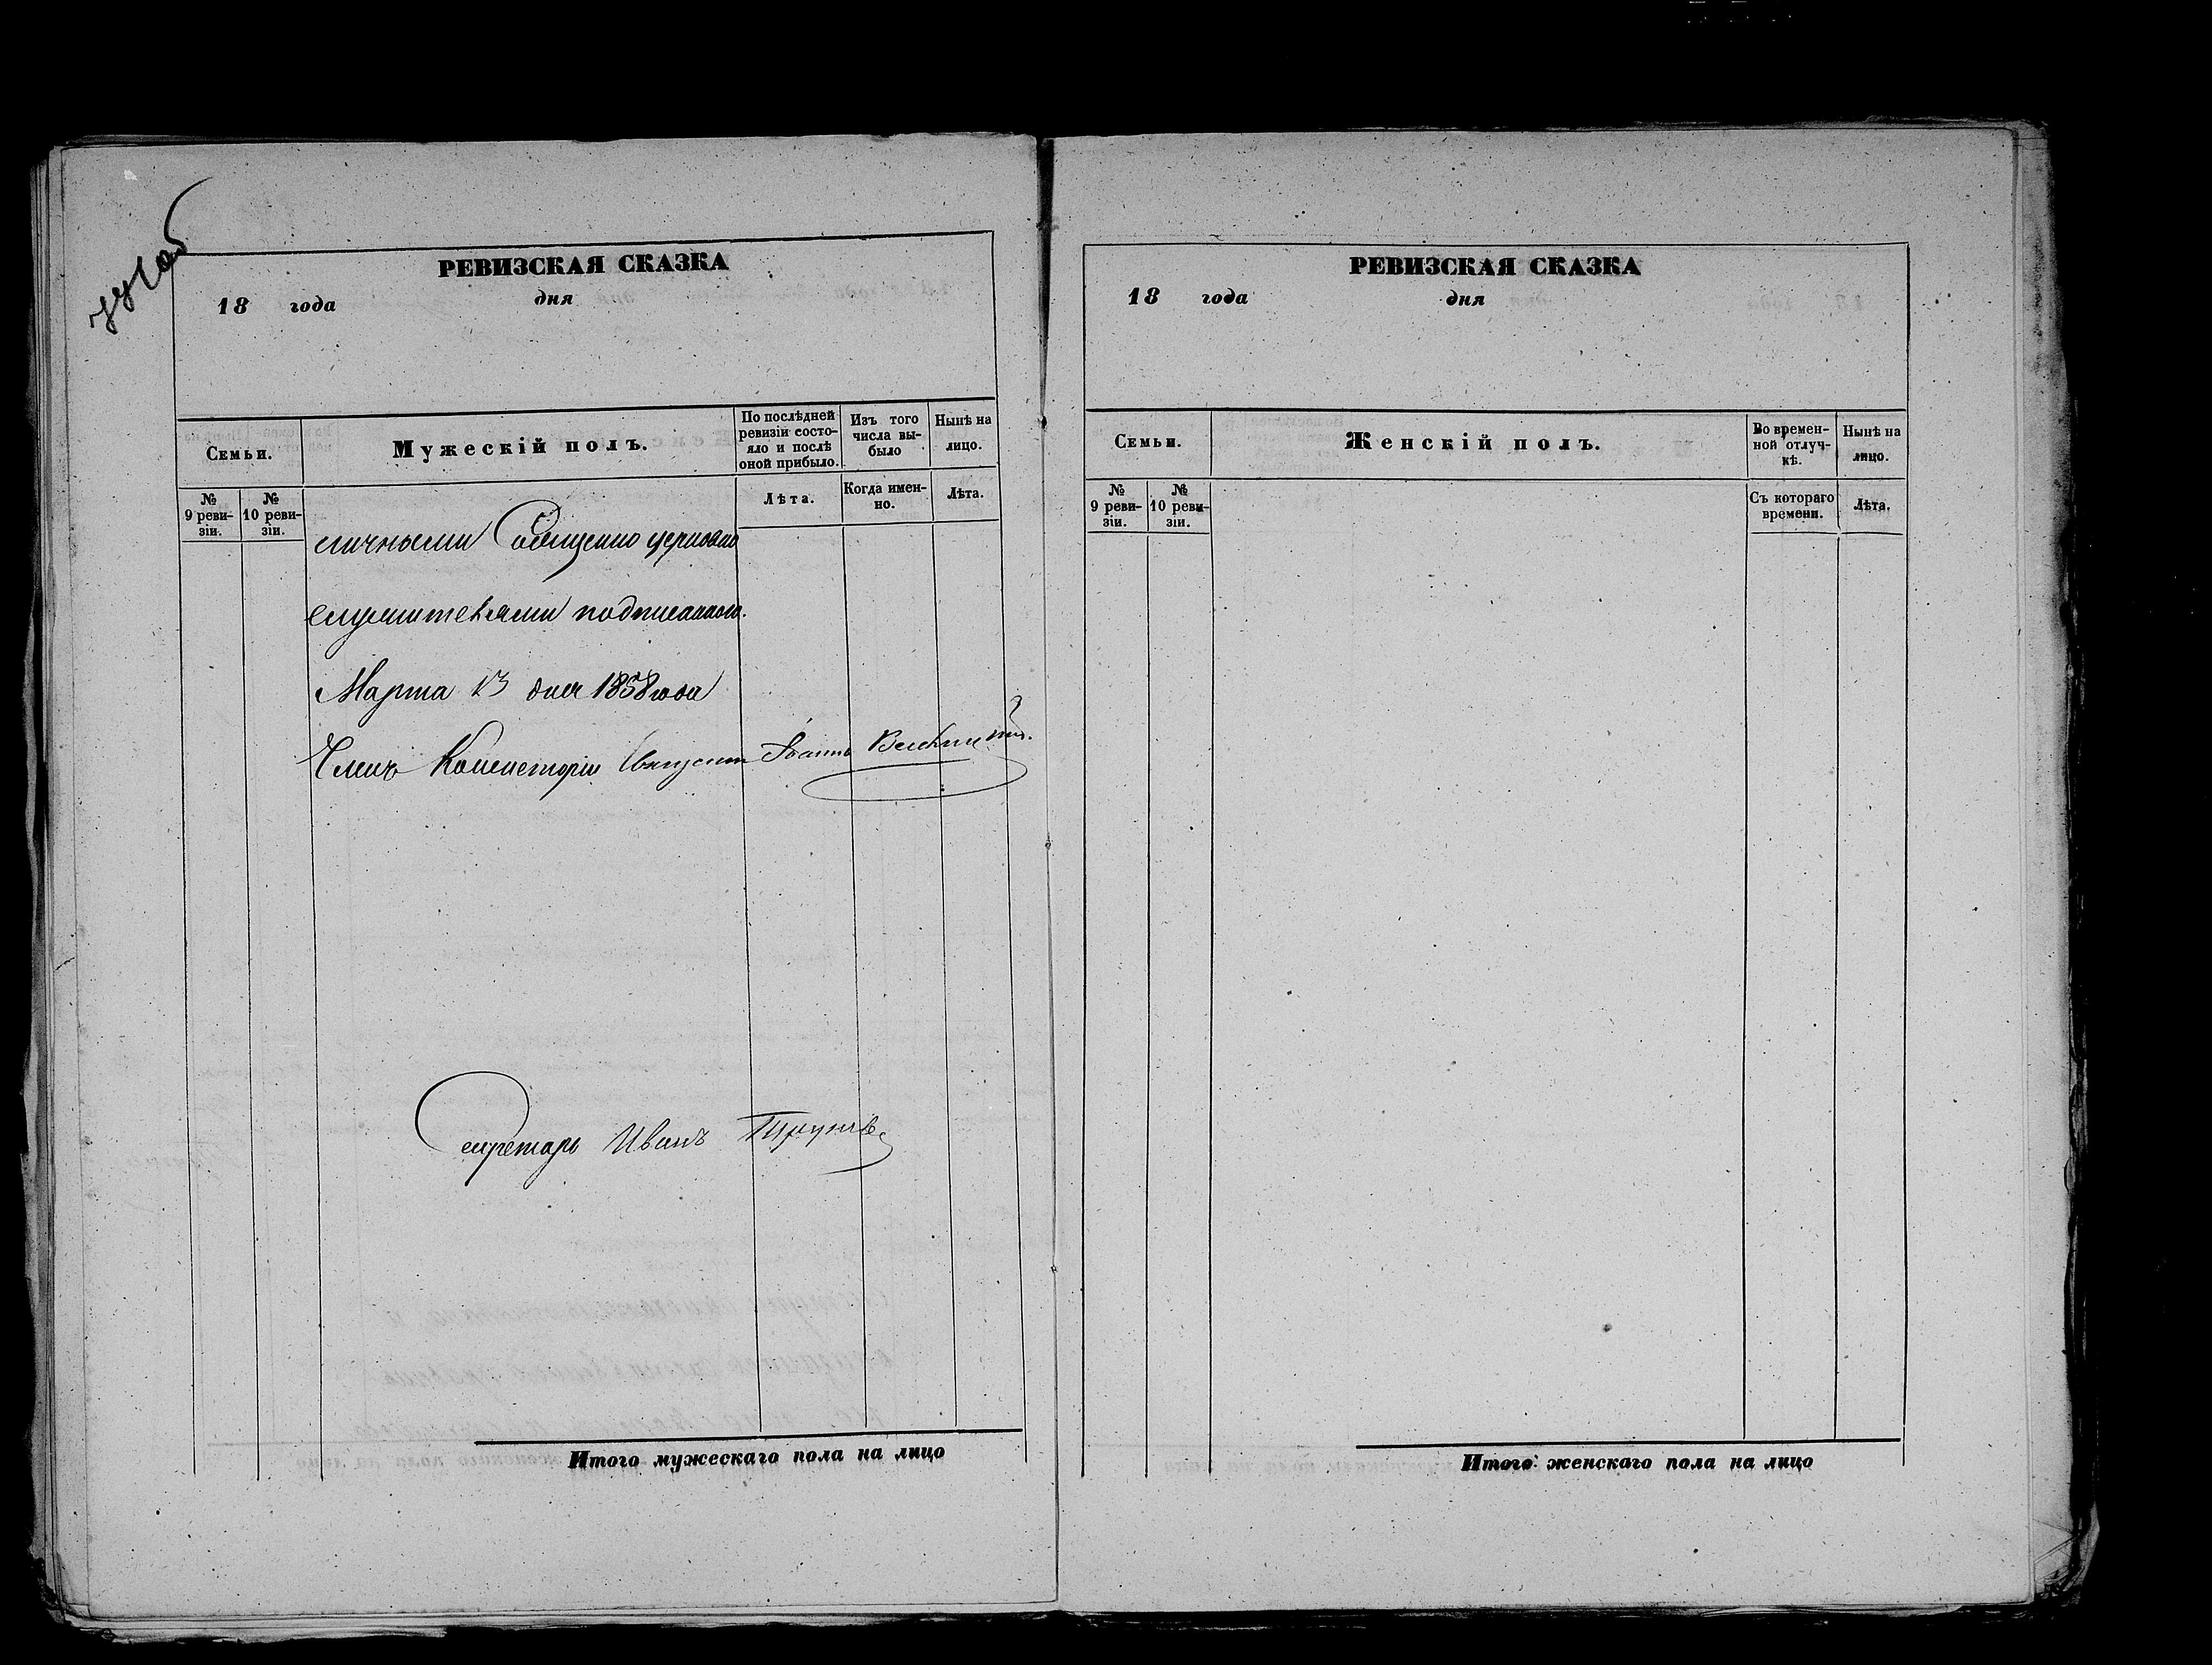 РЕВИЗСКАЯ СКАЗКА
18 года дня
Семьи.
Мужескій полъ.
По послѣдней ревизіи состо-
яло и послѣ
оной прибыло.
Изъ того
числа вы-
было
Нынѣ на
лицо.
№
9 реви-
зіи.
№
10 реви-
зіи.
Лѣта.
Когда имен-
но.
Лѣта.
личными Священно церковно
служителями подписаннаго.
Марта 13 дня 1858 года
Членъ Консисторіи Священникъ Іоаннъ
Секретарь Иванъ
Итого мужескаго пола на лицо
РЕВИЗСКАЯ СКАЗКА
18 года дня
Семьи.
Женскій полъ.
Во времен-
ной отлуч-
кѣ.
Нынѣ на
лицо.
№
9 реви-
зіи.
№
10 реви-
зіи.
Съ котораго
времени.
Лѣта.
Итого женскаго пола на лицо